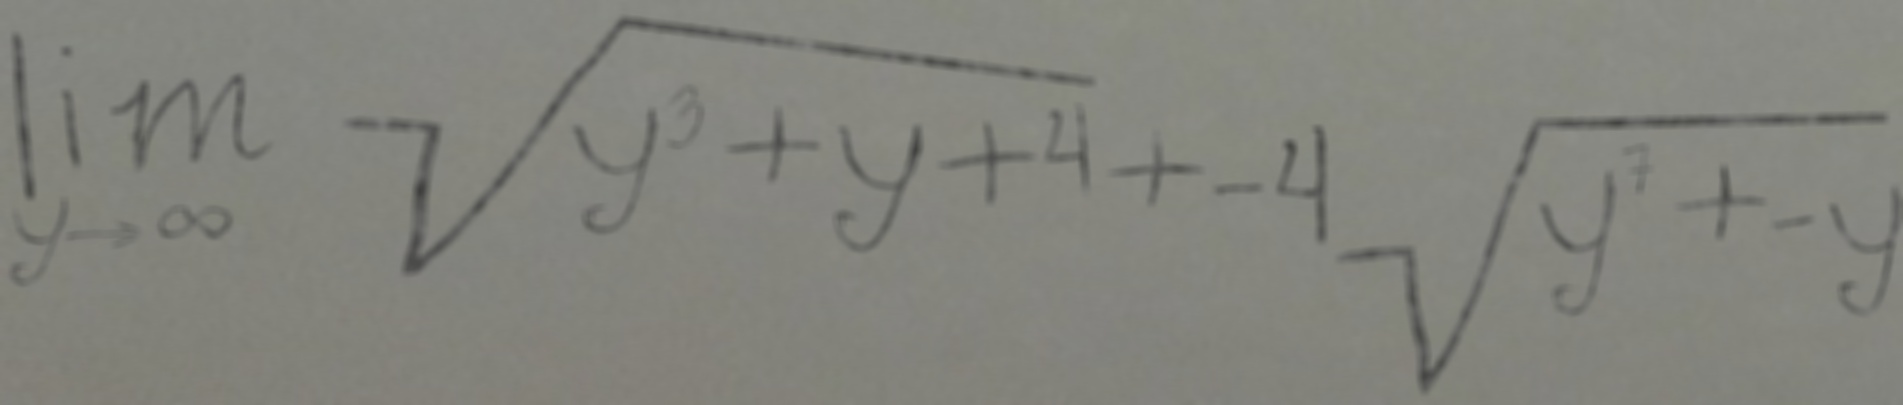 lim y→∞ √(y³+y+4)+-4√(y⁷+-y)